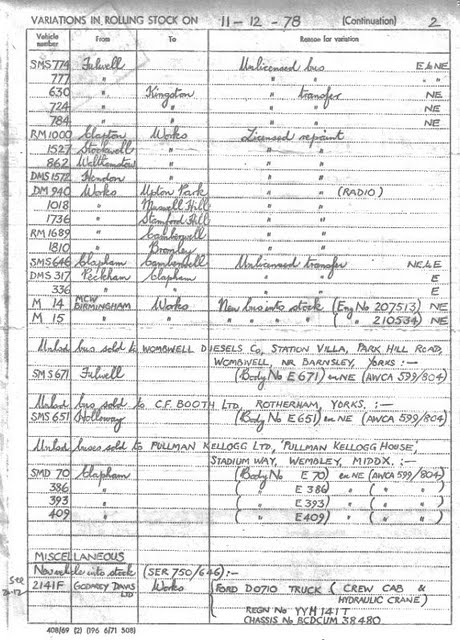 VARIATIONS IN ROLLING STOCK ON 11-12-78 (Continuation) 2
Vehicle number From To Reason for variation
SMS 774 Fulwell Unlicensed bus E & NE
777 " " " " "
630 " Kingston " transfer NE
724 " " " " NE
784 " " " " NE
RM 1000 Clapton Works Licensed repaint
1527 Stockwell " " "
862 Walthamstow " " "
DMS 1572 Hendon " " "
DM 940 Works Upton Park " " (RADIO)
1018 " Muswell Hill " "
1736 " Stamford Hill " "
RM 1689 " Camberwell " "
1810 " Bromley " "
SMS 646 Clapham Camberwell Unlicensed transfer NE & E
DMS 317 Peckham Clapham " " E
336 " " " " E
M 14 MCW BIRMINGHAM Works New bus into stock (Eng No 207513) NE
M 15 " " " " " " ( " " 210534) NE
Unlicd bus sold to WOMBWELL DIESELS Co, STATION VILLA, PARK HILL ROAD,
WOMBWELL, NR BARNSLEY, YORKS :—
SMS 671 Fulwell (Body No E671) en NE (AWCA 599/804)
Unlicd bus sold to C.F. BOOTH LTD, ROTHERHAM, YORKS. :—
SMS 651 Holloway (Body No E651) en NE (AWCA 599/804)
Unlicd buses sold to PULLMAN KELLOGG LTD, 'PULLMAN KELLOGG HOUSE',
STADIUM WAY, WEMBLEY, MIDDX. :—
SMD 70 Clapham (Body No E 70) en NE (AWCA 599/804)
386 " ( " " E 386) " " ( " " )
393 " ( " " E393) " " ( " " )
409 " ( " " E409) " " ( " " )
MISCELLANEOUS
New vehicle into stock (SER 750/646) :—
See
2141F GODFREY DAVIS LTD Works FORD D0710 TRUCK (CREW CAB &
HYDRAULIC CRANE)
REGN No YYH 141T
CHASSIS No BCDCUM 38480
408/69 (2) (176 6/71 508)